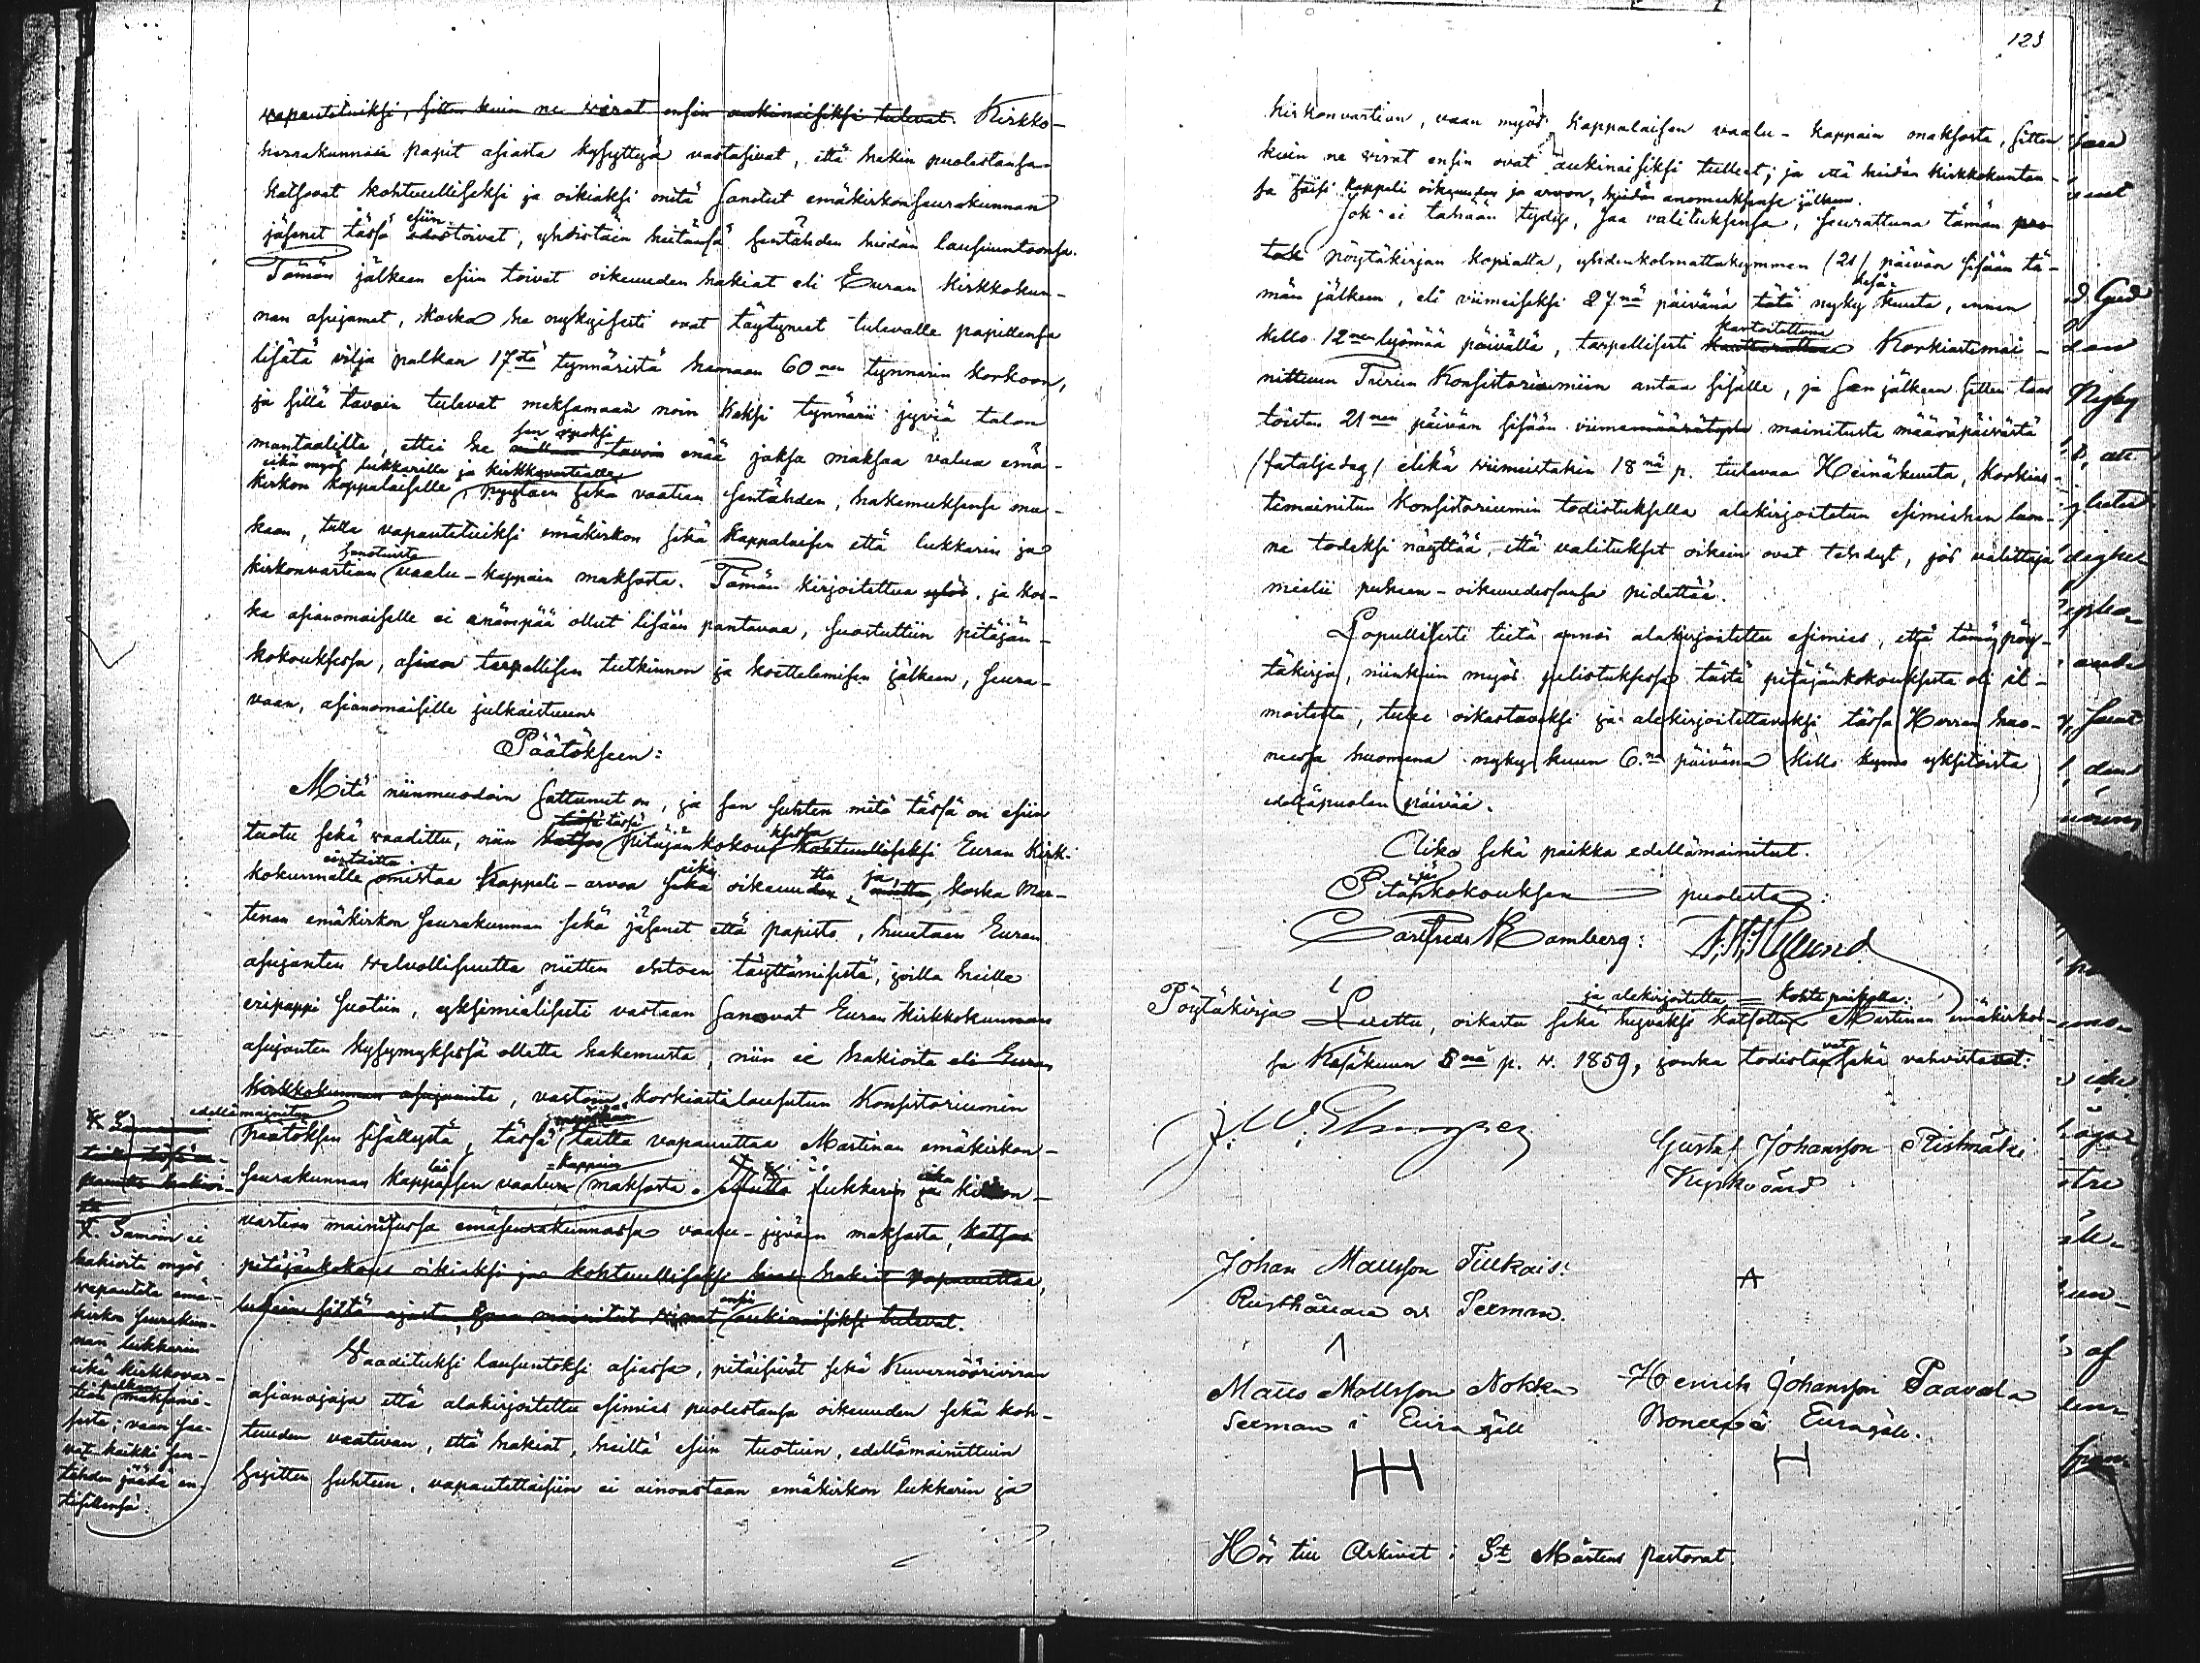 123
vapautetuiksi, sitten kuin ne wirat ensin aukinaisiksi tulevat. Kirkko-
herrakunnan papit asiasta kysyttyä vastasivat, että hekin puolestansa
katsovat kohtuulliseksi ja oikiaksi mitä sanotut emäkirkonseurakunnan
jäsenet tässä esiin toivat, yhdistäin heitänsä sentähden heidän lausuntoonsa.
Tämän jälkeen esiin toivat oikeuden hakiat eli Euran kirkkokun-
nan asujamet, koska he nykyisesti ovat täytyneet tulevalle papillensa
lisätä vilja palkan 17stä tynnäristä hamaan 60nen tynnärin korkoon,
ja sillä tavoin tulevat maksamaan noin kaksi tynnärii jyviä talon
mantaalilta, ettei he sen vuoksi tavoin enää jaksa maksaa valua emä-
eikä myös lukkarille ja kirkkovartialle
kirkon kappalaiselle, pyytäen sekä vaatien sentähden, hakemuksensa mu-
kaan, tulla vapautetuiksi emäkirkon sekä kappalaisen että lukkarin ja
sanotuista
kirkonvartian vaalu-kappain maksosta. Tämän kirjoitettua ylös, ja kos-
ka asianomaisille ei enämpää ollut lisään pantavaa, suostuttiin pitäjän-
kokouksessa, asian tarpellisen tutkinnon ja koettelemisen jälkeen, seura-
vaan, asianomaisille julkaistuun
Päätökseen:
Mitä niinmuodoin sattunut on, ja sen suhten mitä tässä on esiin
tuotu sekä waadittu, niin katsoo pitäjänkokous kohtuulliseksi Euran kirk-
kokunnalle omistaa kappeli-arvoa sekä oikeuden, mutta, koska Mar-
tinan emäkirkon seurakunnan sekä jäsenet että papisto, huutaen Euran
asujanten welvollisuutta niitten ehtoen täyttämisestä, joilla heille
eripappi suotiin, yksimielisesti vastaan sanovat Euran kirkkokunnan
asujanten kysymyksessä olletta hakemusta, niin ei hakioita eli Euran
kirkkokunnan asujamita, vastoin korkiastilausutun Konsistoriumin
edellämainitun
päätöksen sisällystä, tässä taitta vapauttaa Martinan emäkirkon-
seurakunnan kappalaisen vaalun kappain maksosta. Mutta lukkarin ja kirkon-
vartian mainitussa emäseurakunnassa vaalu-jyväin maksosta, katsoo
pitäjänkokous oikiaksi ja kohtuulliseksi hakiat vapauttaa,
lukein siitä ajasta, kuin mainitut wirat ensin aukinaisiksi tulevat.
X. Samoin ei
hakioita myös
vapauteta emä-
kirkon seurakun-
nan lukkarin
eikä kirkkovar-
tian palkan maksami-
sesta; vaan saa-
vat kaikki sen-
tähden jäädä en-
tisillensä.
Vaadituksi lausuntoksi asiassa, pitäisivät sekä Kuvernöörivirran
asianajaja että alakirjoitettu esimies puolestansa oikeuden sekä koh-
tuuden vaativan, että hakiat, heiltä esiin tuotuin, edellämainittuin
syitten suhteen, vapautettaisiin ei ainoastaan emäkirkon lukkarin ja
kirkonvartian, vaan myös kappalaisen vaalu-kappain maksosta, sitten
kuin ne wirat ensin ovat aukinaisiksi tulleet; ja että heidän kirkkokuntan-
sa saisi kappeli oikeuden ja arvon, heidän anomuksensa jälkeen.
Jok' ei tähän tydy, saa valituksensa, seurattuna tämän
pöytäkirjan kopialta, yhdenkolmattakymmen (21) päivän sisään tä-
män jälkeen, eli viimeiseksi 27nä päivänä tätä nyky kesä-kuuta, ennen
kello 12nen lyömää päivällä, tarpellisesti kartoitettuna Korkiastimai-
nittuun Turun Konsistoriumiin antaa sisälle, ja sen jälkeen sitten taas
toistu 21nen päivän sisään viimemäärätystä mainitusta määräpäivästä
(fataljedag) elikä viimeistäkin 18nä p. tulevaa Heinäkuuta, korkias-
timainitun Konsistoriumin todistuksella alakirjoitetun esimiehen luo-
na todeksi näyttää, että valitukset oikein ovat tehdyt, jos valittaja
mielii puheen-oikeudessansa pidettää.
Lopullisesti tietä annoi alakirjoitettu esimies, että tämä pöy-
täkirja, niinkuin myös julistuksessa tästä pitäjänkokouksesta oli il-
moitettu, tulee oikastavaksi ja alekirjoitettavaksi tässä Herran huo-
neessa huomena nyky kuun 6.na päivänä kello kymmen yksitoista
edelläpuolen päivää.
Aika sekä paikka edellämainitut.
Pitäjänkokouksen puolesta:
Carl Fredr Bamberg:
Pöytäkirja Luettu, oikastu sekä hyväksi katsottu ja alekirjoitettu kohta paikalla: Martinan emäkirkos-
sa Kesäkuun 5nä p. v. 1859, jonka todistavat sekä vahvistavat:
Gustaf Johansson Ristmäki
Kyrkvärd
Johan Mattsson Tulkais:
Rusthållare ox Sexman.
Matts Mattsson Nokka
Sexman i Eura gäll
Henrik Johansson Paavola
Bonde i Eura gäll.
Hör till Arkivet i St Mårtens pastorat.